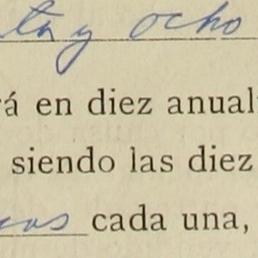 y ocho
rá en diez anual
siendo las diez
cada una,